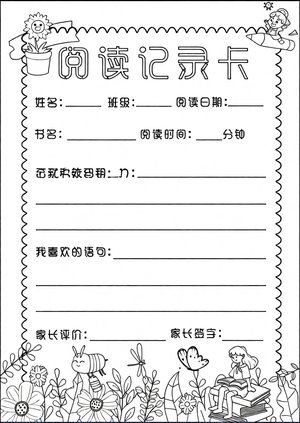 阅读记录卡
姓名:______ 班级:______ 阅读日期:______
书名:__________ 阅读时间:____分钟
我喜欢的语句:
家长评价:____________ 家长签字:______